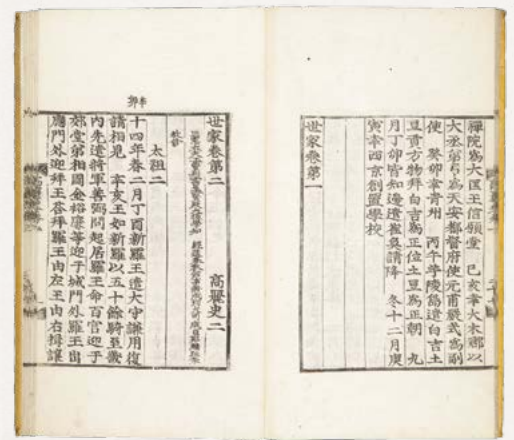 禪院爲大匡王信願堂 己亥幸大木郡以
大丞第弓爲天安都督府使元甫嚴式爲副
使 癸卯幸青州 丙午芋陵島遣白吉土
豆貢方物拜白吉爲正位土豆爲正朝 九
月丁卯皆知邊遣崔奐請降 冬十二月庚
寅幸西京創置學校
世家卷第一
世家卷第二 高麗史二
教修
太祖二
辛卯
十四年春二月丁酉新羅王遣太守謙用復
請相見 辛亥王如新羅以五十餘騎至畿
內先遣將軍善弼問起居羅王命百官迎于
郊堂弟相國金裕廉等迎于城門外羅王出
應門外迎拜王答拜羅王由左王由右揖讓